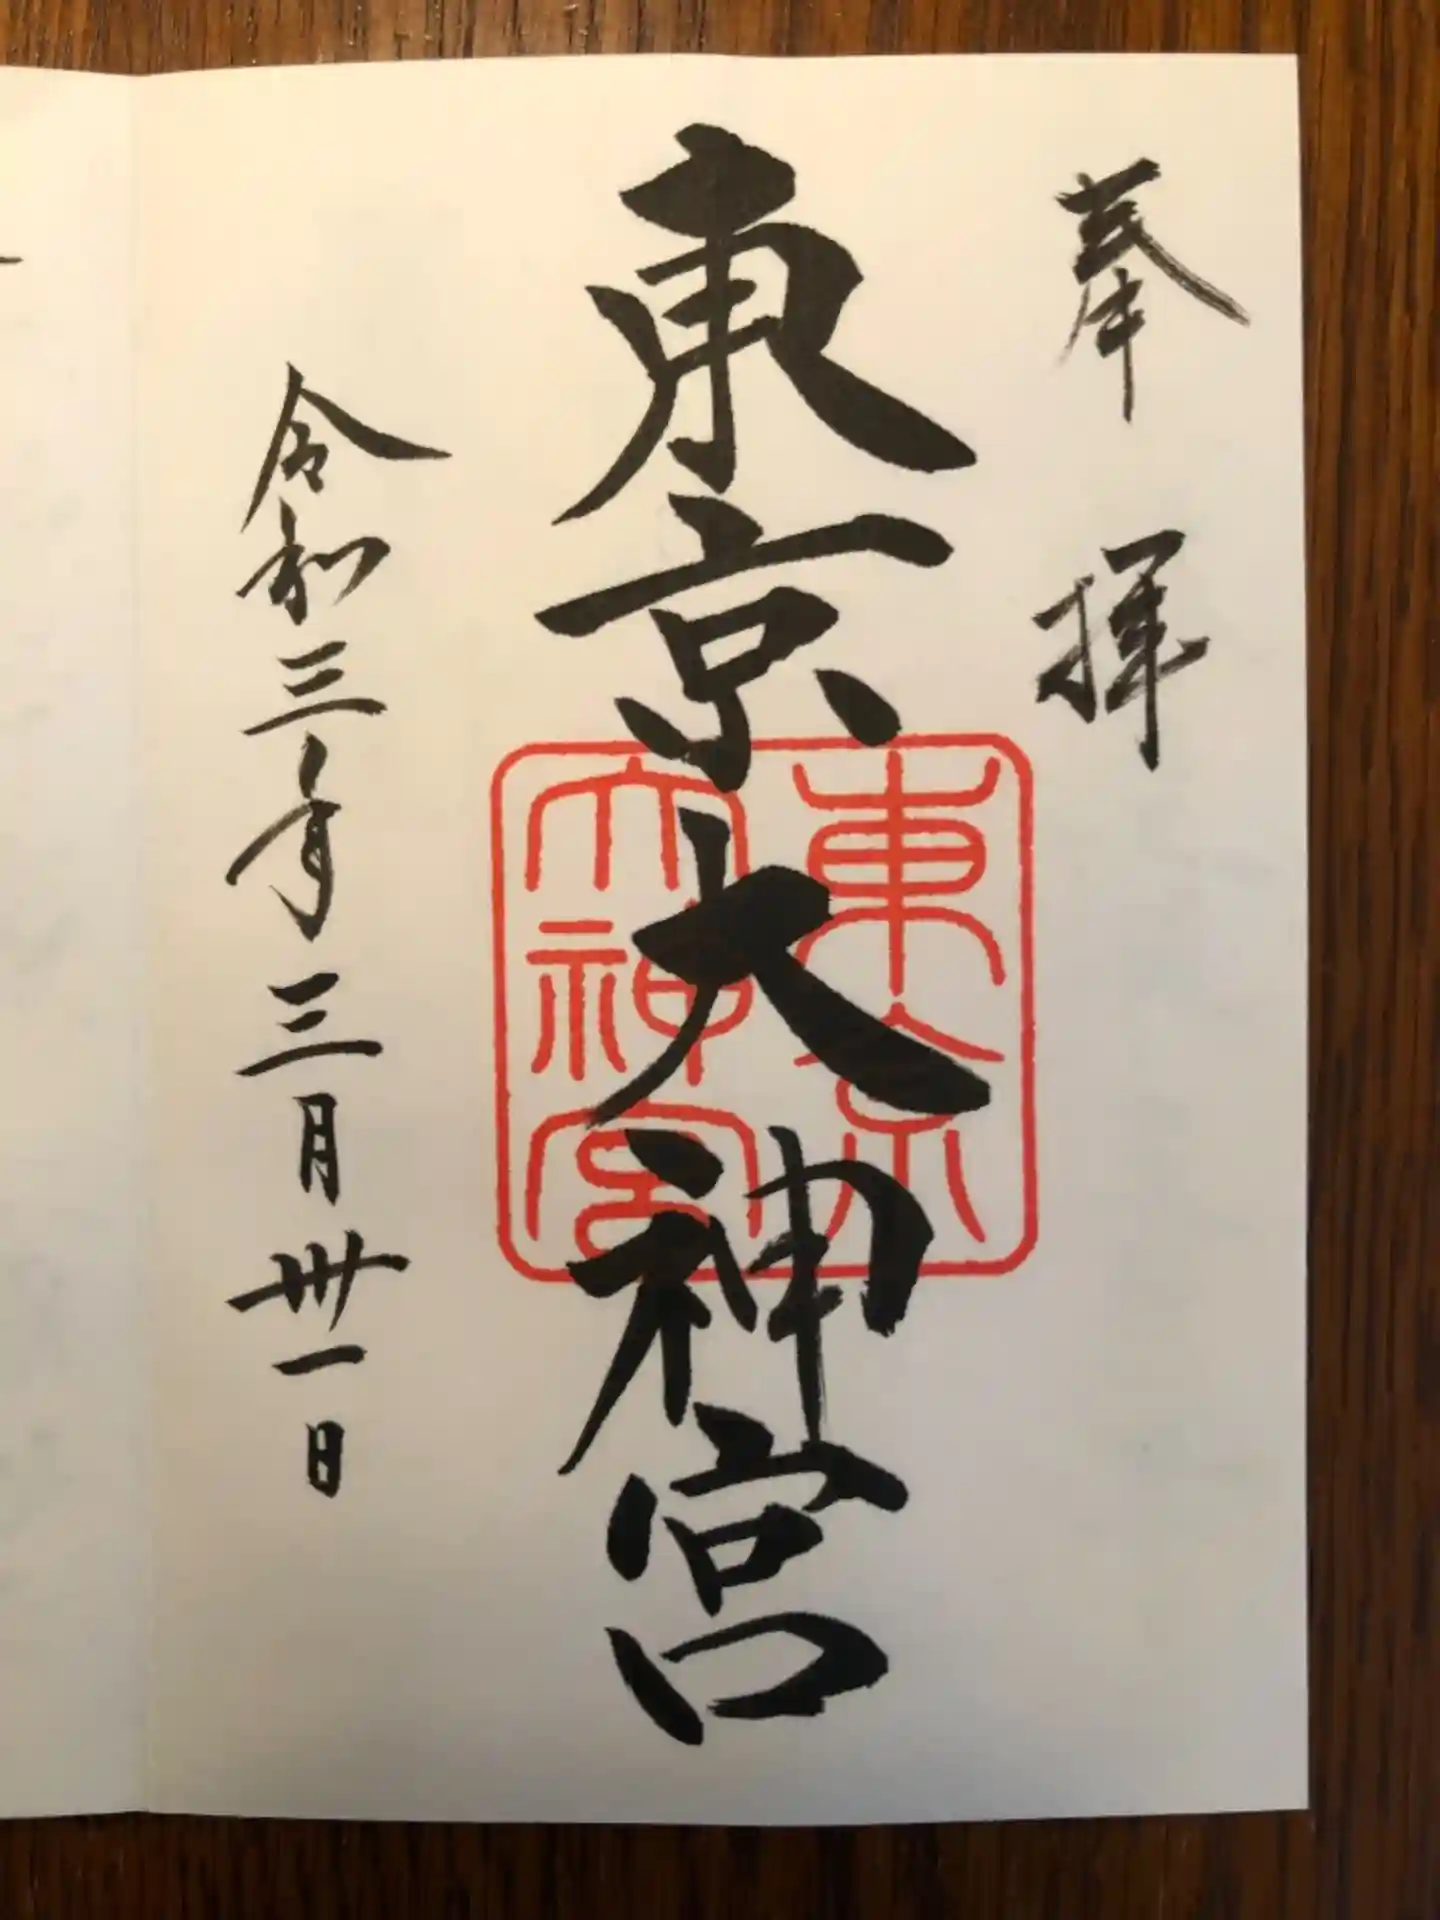 奉拝
東京大神宮
東京
大神宮
令和三年三月卅一日